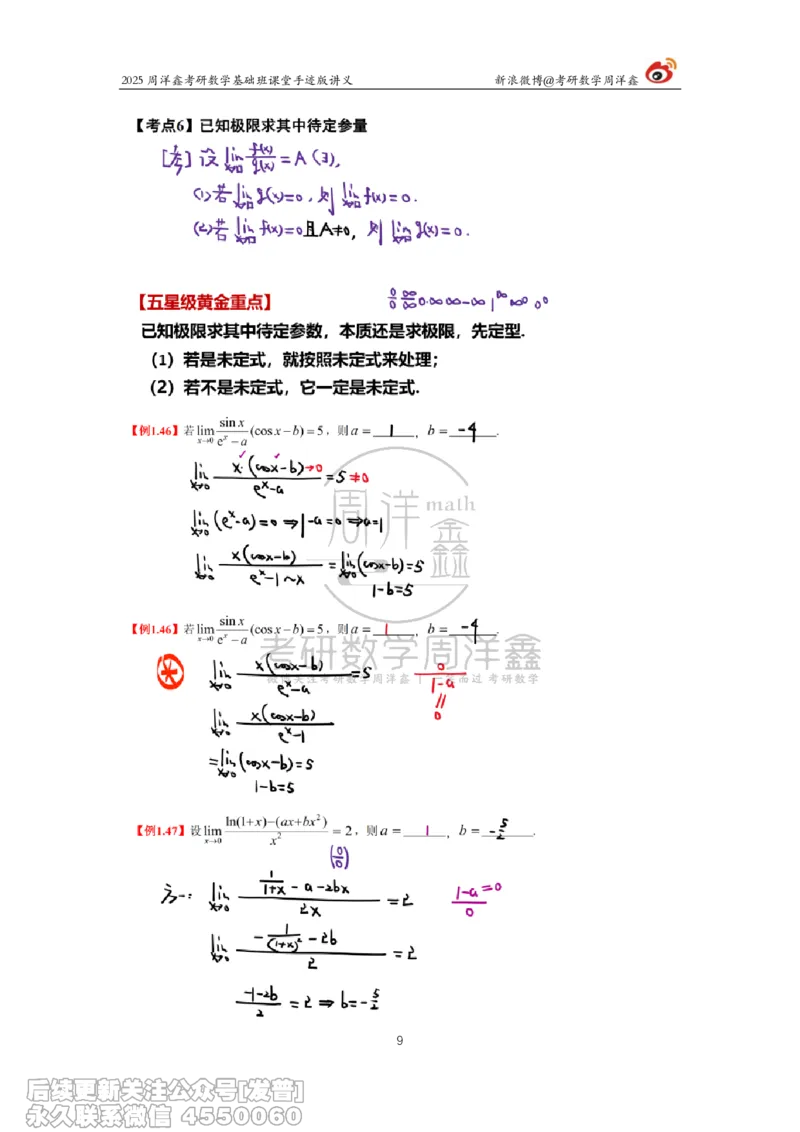 2025 周洋鑫考研数学基础班课堂手迹版讲义 新浪微博@考研数学周洋鑫
【考点6】已知极限求其中待定参量
[考] 设 lim x→□ f(x)/g(x) = A (∃),
(1) 若 lim x→□ g(x)=0, 则 lim x→□ f(x)=0.
(2) 若 lim x→□ f(x)=0 且A≠0, 则 lim x→□ g(x)=0.
【五星级黄金重点】 0/0 ∞/∞ 0·∞ ∞-∞ 1^∞ ∞^0 0^0
已知极限求其中待定参数，本质还是求极限，先定型.
（1）若是未定式，就按照未定式来处理；
（2）若不是未定式，它一定是未定式.
【例1.46】若 lim x→0 sin x/(e^x − a) (cos x − b) = 5，则 a = 1， b = -4.
lim x→0 x·(cosx-b)→0 / (e^x-a) = 5 ≠0
lim x→0 (e^x-a)=0 ⇒ 1-a=0 ⇒ a=1
lim x→0 x(cosx-b) / (e^x-1~x) = lim x→0 (cosx-b)=5
1-b=5
周洋鑫 math
【例1.46】若 lim x→0 sin x/(e^x − a) (cos x − b) = 5，则 a = 1， b = -4.
考研数学周洋鑫
lim x→0 x(cosx-b) / (e^x-a) = 5 0/(1-a)
= 0
lim x→0 x(cosx-b) / (e^x-1)
= lim x→0 (cosx-b)=5
1-b=5
【例1.47】设 lim x→0 [ln(1+x)−(ax+bx²)] / x² = 2，则 a = 1， b = -5/2.
(0/0)
方一: lim x→0 (1/(1+x) - a - 2bx) / 2x = 2 (1-a=0)/0
lim x→0 (-1/(1+x)² - 2b) / 2 = 2
(-1-2b)/2 = 2 ⇒ b=-5/2
9
后续更新关注公众号[发普]
永久联系微信 4550060